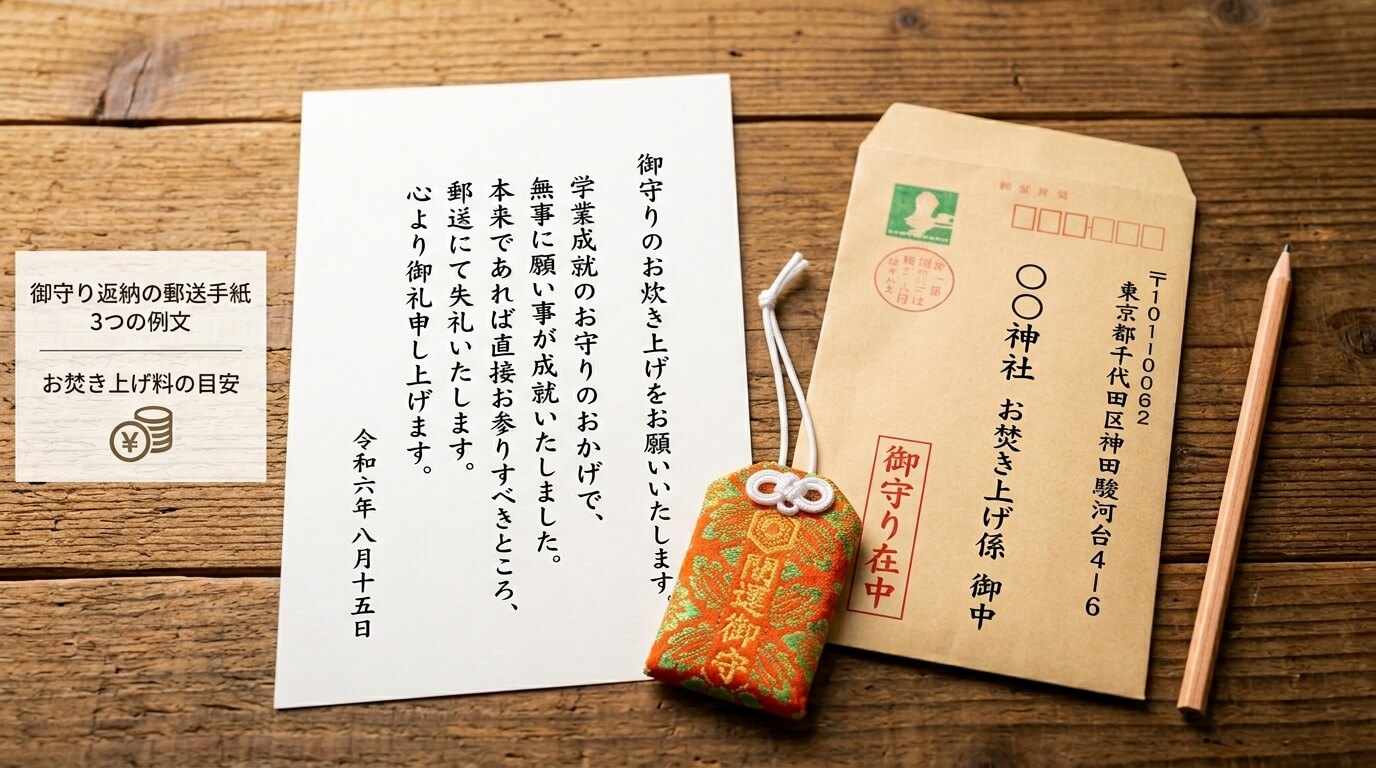 御守り返納の郵送手紙
3つの例文
お焚き上げ料の目安
¥
御守りのお炊き上げをお願いいたします。
学業成就のお守りのおかげで、
無事に願い事が成就いたしました。
本来であれば直接お参りすべきところ、
郵送にて失礼いたします。
心より御礼申し上げます。
令和六年 八月十五日
開運御守
〒101-0062
東京都千代田区神田駿河台4-6
〇〇神社 お焚き上げ係 御中
御守り在中